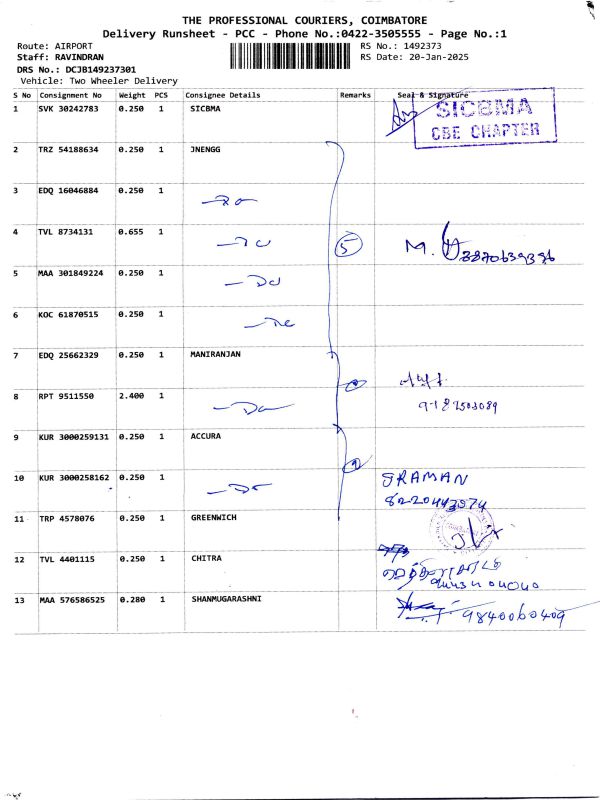 THE PROFESSIONAL COURIERS, COIMBATORE
Delivery Runsheet - PCC - Phone No.:0422-3505555 - Page No.:1
Route: AIRPORT RS No.: 1492373
Staff: RAVINDRAN RS Date: 20-Jan-2025
DRS No.: DCJB149237301
Vehicle: Two Wheeler Delivery
S No Consignment No Weight PCS Consignee Details Remarks Seal & Signature
1 SVK 30242783 0.250 1 SICBMA
SICBMA
CBE CHAPTER
2 TRZ 54188634 0.250 1 JNENGG
3 EDQ 16046884 0.250 1
4 TVL 8734131 0.655 1 5 M.
5 MAA 301849224 0.250 1
6 KOC 61870515 0.250 1
7 EDQ 25662329 0.250 1 MANIRANJAN
8 RPT 9511550 2.400 1
9 KUR 3000259131 0.250 1 ACCURA
10 KUR 3000258162 0.250 1 SRAMAN
11 TRP 4578076 0.250 1 GREENWICH
12 TVL 4401115 0.250 1 CHITRA
13 MAA 576586525 0.280 1 SHANMUGARASHNI
9840060409